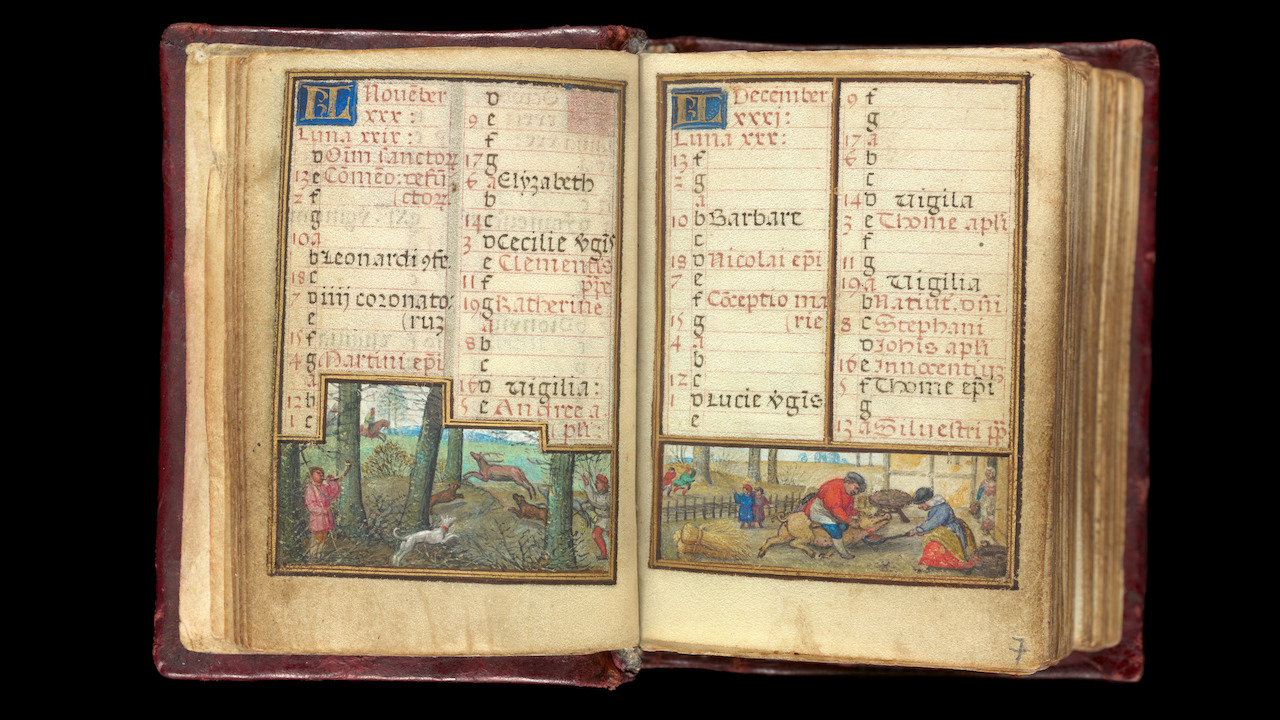 KL Noue̅ber
xxx :
Luna xxix :
d Oim̅ sanctoꝝ
13 e Co̅me̅o : defu̅
2 f (ctoꝝ.
g
10 a
b Leonardi ꝯfe.
18 c
7 d iiii coronato:
e (ruʒ
15 f
4 g Martini ep̅i
a
12 b
1 c
d
9 e
f
17 g
6 a Elyzabeth
b
14 c
3 d Cecilie v̅gis̅
e Clementis
11 f pp̅e
19 g Katherine
a
8 b
c
16 d vigilia :
5 e Andree a.
pl̅i :
KL December
xxxi :
Luna xxx :
13 f
2 g
a
10 b Barbare
c
18 d Nicolai ep̅i
7 e
f Co̅ceptio ma
15 g (rie
4 a
b
12 c
1 d Lucie v̅gis̅
e
9 f
g
17 a
6 b
c
14 d vigila
3 e Thome apl̅i
f
11 g
19 a vigilia
b Natiuit. dn̅i
8 c Stephani
d Joh̅is apl̅i
16 e Innocentiu̅
5 f Thome ep̅i
g
13 a Siluestri pp̅
7